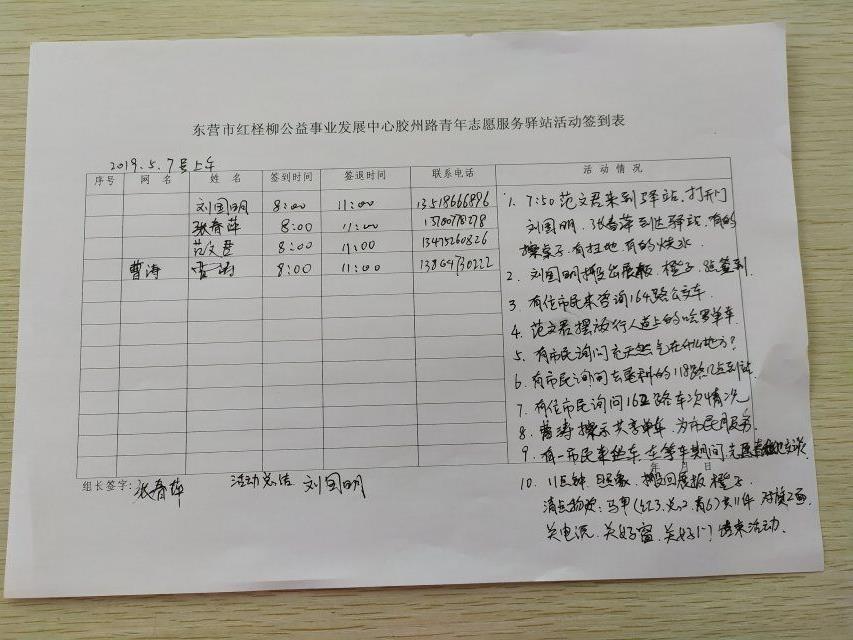 东营市红柽柳公益事业发展中心胶州路青年志愿服务驿站活动签到表
2019.5.7号上午
序号 网名 姓名 签到时间 签退时间 联系电话 活动情况
刘国明 8:00 11:00 13518666896
张春萍 8:00 11:00 13700778278
范文君 8:00 11:00 13475260826
曹涛 曹涛 8:00 11:00 13864730222
1. 7:50范文君来到驿站.打开门
刘国明.张春萍到达驿站.有的
擦桌子.有扫地.有的烧水.
2. 刘国明搬出展板.橙子.签到
3. 有位市民来咨询164路公交车.
4. 范文君摆放行人道上的哈罗单车.
5. 有市民询问充天然气在什么地方?
6. 有市民询问去垦利的118路几点到站.
7. 有位市民询问162路车次情况
8. 曹涛擦示共享单车.为市民服务.
9. 有一市民来坐车.在等车期间
年 月 日
10. 11点钟.搬回展板.橙子.
清点物资:马甲(红3.
关电源.关好窗.关好门.结束活动.
组长签字:张春萍 活动总结 刘国明